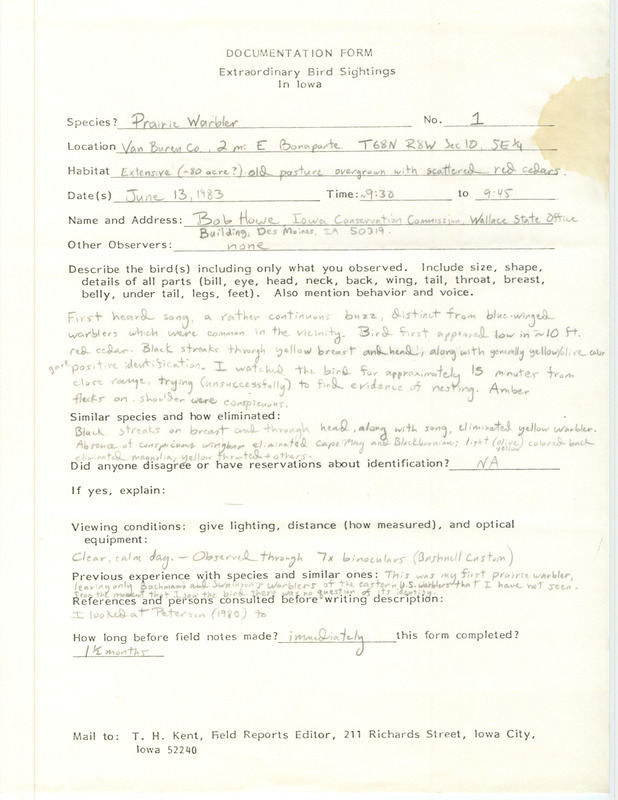 DOCUMENTATION FORM
Extraordinary Bird Sightings
In Iowa
Species? Prairie Warbler No. 1
Location Van Buren Co., 2 mi E Bonaparte T68N R8W Sec 10, SE¼
Habitat Extensive (~80 acre?) old pasture overgrown with scattered red cedars.
Date(s) June 13, 1983 Time: ~9:30 to 9:45
Name and Address: Bob Howe, Iowa Conservation Commission, Wallace State Office
Building, Des Moines, IA 50319.
Other Observers: none
Describe the bird(s) including only what you observed. Include size, shape,
details of all parts (bill, eye, head, neck, back, wing, tail, throat, breast,
belly, under tail, legs, feet). Also mention behavior and voice.
First heard song, a rather continuous buzz, distinct from blue-winged
warblers which were common in the vicinity. Bird first appeared low in ~10 ft.
red cedar. Black streaks through yellow breast and head, along with generally yellow/olive color
gave positive identification. I watched the bird for approximately 15 minutes from
close range, trying (unsuccessfully) to find evidence of nesting. Amber
flecks on shoulder were conspicuous.
Similar species and how eliminated:
Black streaks on breast and through head, along with song, eliminated yellow warbler.
Absence of conspicuous wingbars eliminated Cape May and Blackburnian; light (olive) colored back
yellow
eliminated magnolia, yellow throated + others.
Did anyone disagree or have reservations about identification? NA
If yes, explain:
Viewing conditions: give lighting, distance (how measured), and optical
equipment:
Clear, calm day. — Observed through 7x binoculars (Bushnell Custom)
Previous experience with species and similar ones: This was my first prairie warbler,
leaving only Bachman's and Swainson's Warblers of the eastern U.S. warblers that I have not seen.
From the moment that I saw the bird there was no question of its identity.
References and persons consulted before writing description:
I looked at Peterson (1980) to
How long before field notes made? immediately this form completed?
1½ months
Mail to: T. H. Kent, Field Reports Editor, 211 Richards Street, Iowa City,
Iowa 52240